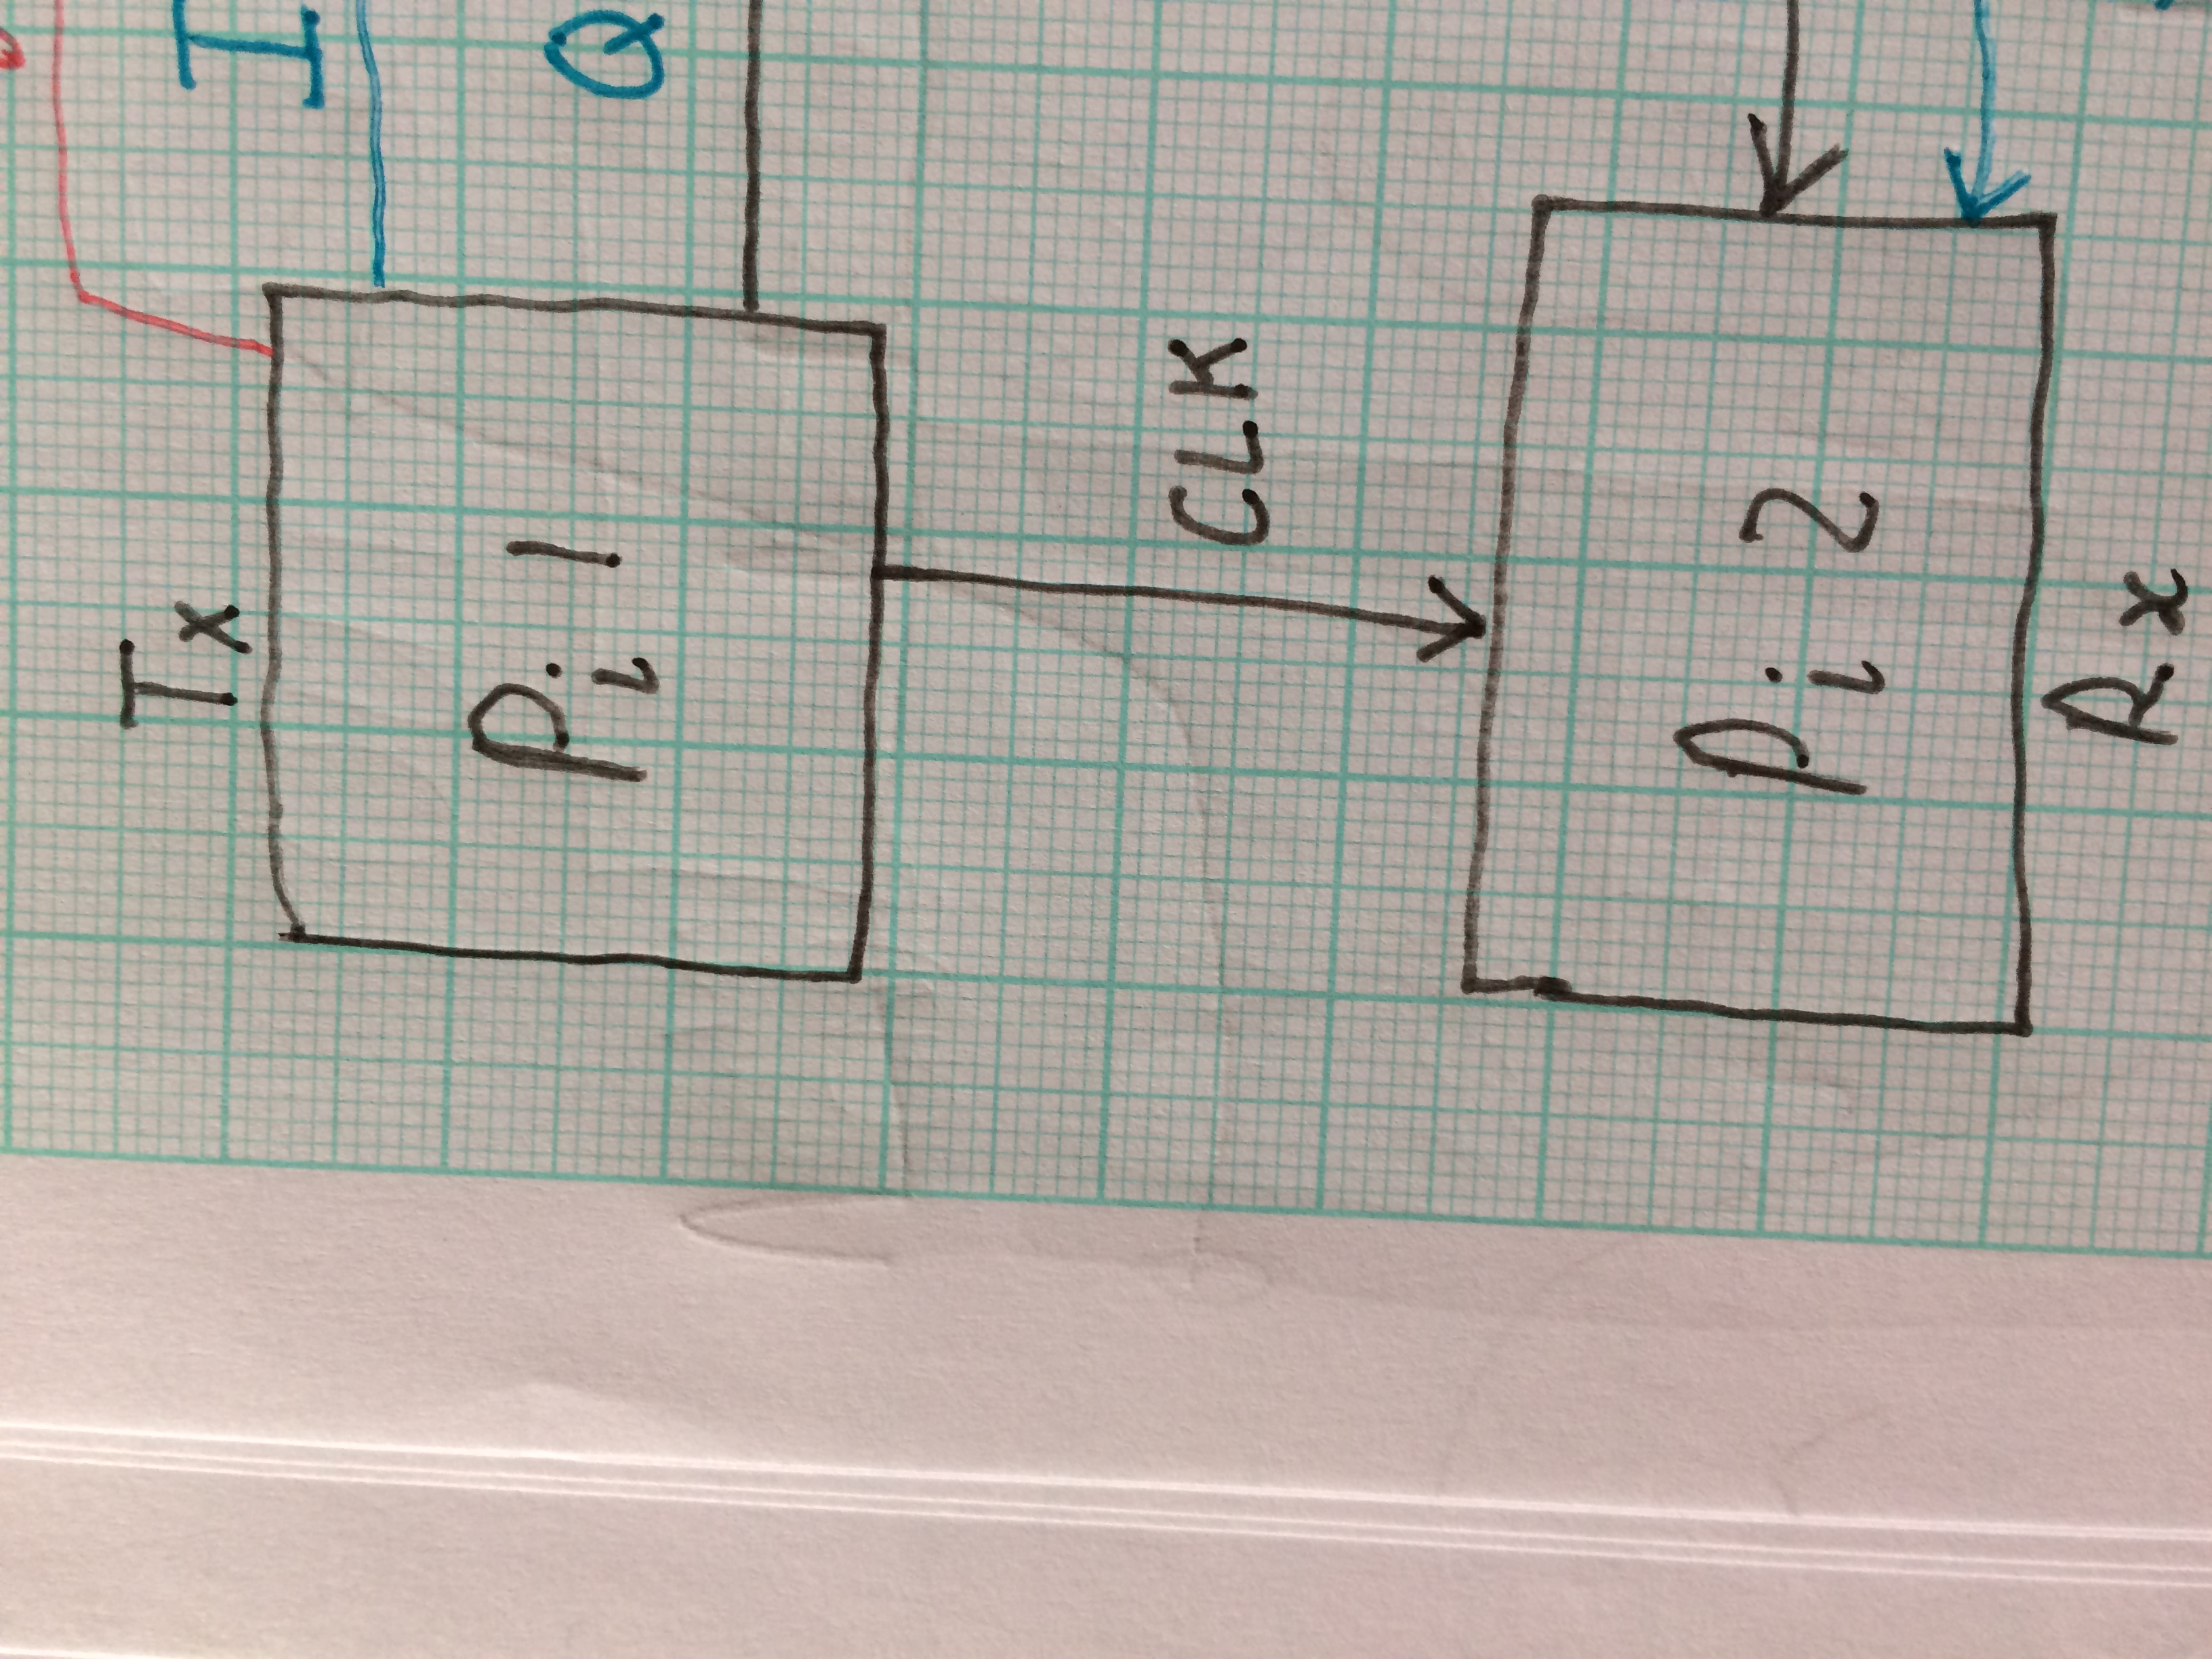 Tx
I
Pi 1
Q
CLK
Pi 2
Rx